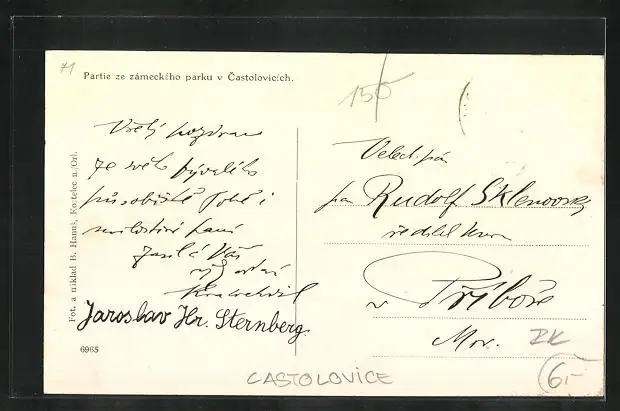 71
Partie ze zámeckého parku v Častolovicích.
150
Vřelý pozdrav
ze svého bývalého
působiště Tobě i
milostivé paní
zasílá Váš
Jaroslav Hr. Sternberg
Fot. a náklad B. Hanuš, Kostelec n./Orl.
6965
Veleb. pán
pan Rudolf Sklenovský
ředitel
v Příboře
Mor.
ZK
CASTOLOVICE
6,-